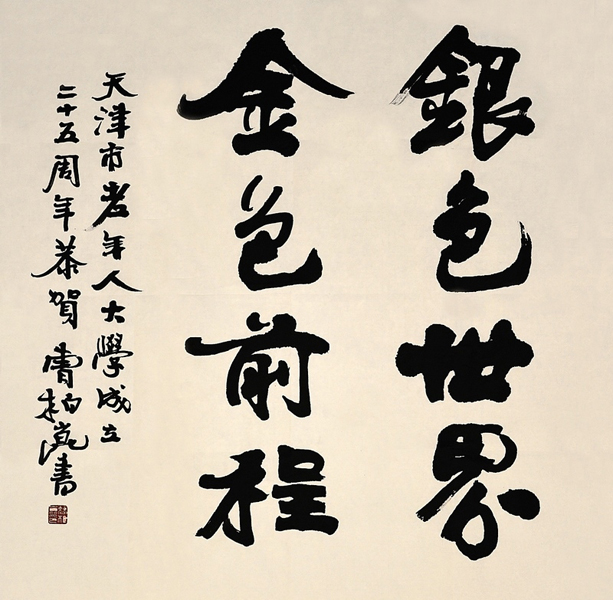 銀色世界
金色前程
天津市老年人大學成立
二十五周年恭賀 曹柏崑書